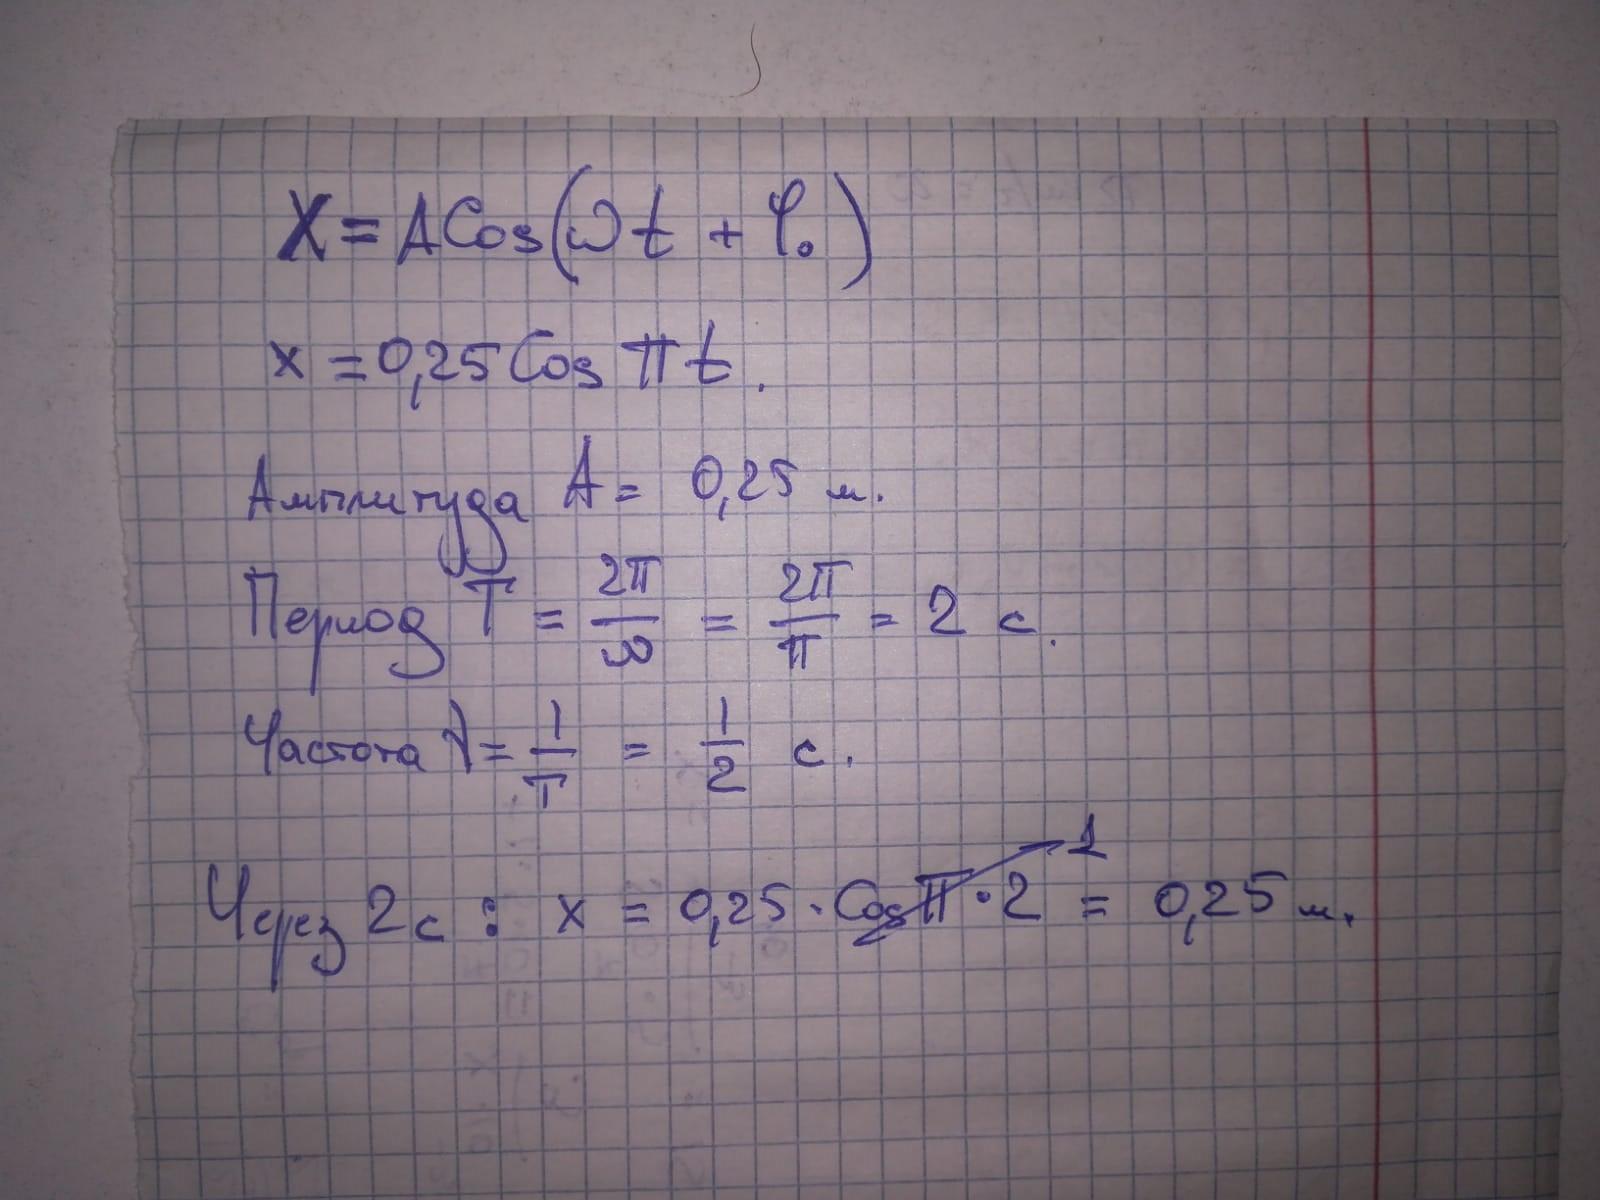 X = A Cos(ωt + φ₀)
x = 0,25 Cos πt.
Амплитуда A = 0,25 м.
Период T = 2π/ω = 2π/π = 2 с.
Частота ν = 1/T = 1/2 с.
1
Через 2с : x = 0,25 · Cos π · 2 = 0,25 м.